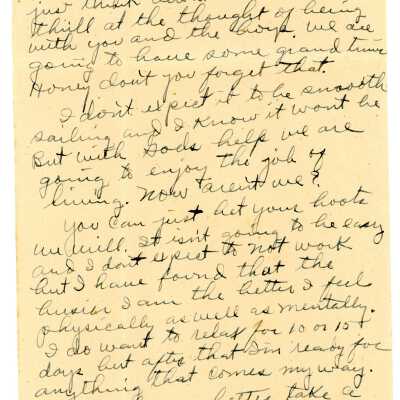 just think
thrill at the thought of being
with you and the boys. We are
going to have some grand times
Honey don't you forget that.
I don't expect it to be smooth
sailing and I know it wont be
But with Gods help we are
going to enjoy the job of
living. Now aren't we?
You can just bet your boots
we will. It isn't going to be easy
and I don't expect to not work
but I have found that the
busier I am the better I feel
physically as well as mentally.
I do want to relax for 10 or 15
days but after that I'm ready for
anything that comes my way.
better take a